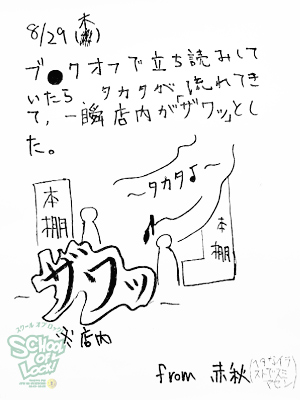 8/29(木)
ブ●クオフで立ち読みして
いたら、タカタが流れてき
て、一瞬店内が「ザワッ」とし
た。
〜タカタ♪〜
本棚
本棚
ザワッ
※店内
スクール オブ ロック
SCHOOL OF LOCK!
from 赤秋
(ヘタなイラストでスミマセン)